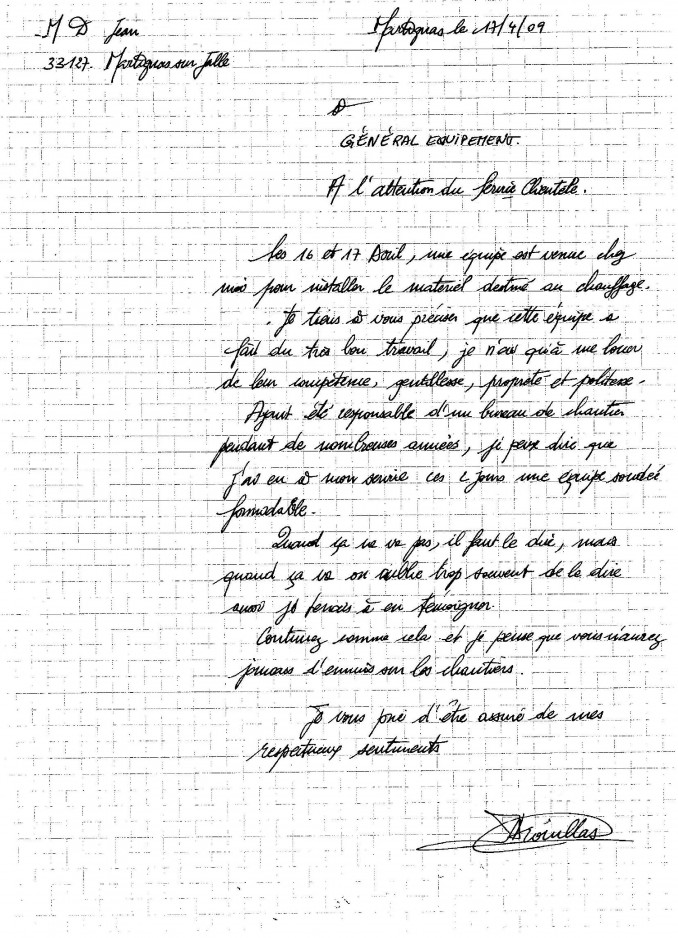 M D Jean
Martignas le 17/4/09
33127. Martignas sur Jalle
à
GÉNÉRAL EQUIPEMENT.
A l'attention du Service Clientèle.
Les 16 et 17 Avril, une équipe est venue chez
moi pour installer le matériel destiné au chauffage.
Je tiens à vous préciser que cette équipe a
fait du très bon travail, je n'ai qu'à me louer
de leur compétence, gentillesse, propreté et politesse.
Ayant été responsable d'un bureau de chantier
pendant de nombreuses années, je peux dire que
j'ai eu à mon service ces 2 jours une équipe soudée
formidable.
Quand ça ne va pas, il faut le dire, mais
quand ça va on oublie trop souvent de le dire
aussi je tenais à en témoigner.
Continuez comme cela et je pense que vous n'aurez
jamais d'ennuis sur les chantiers.
Je vous prie d'être assuré de mes
respectueux sentiments